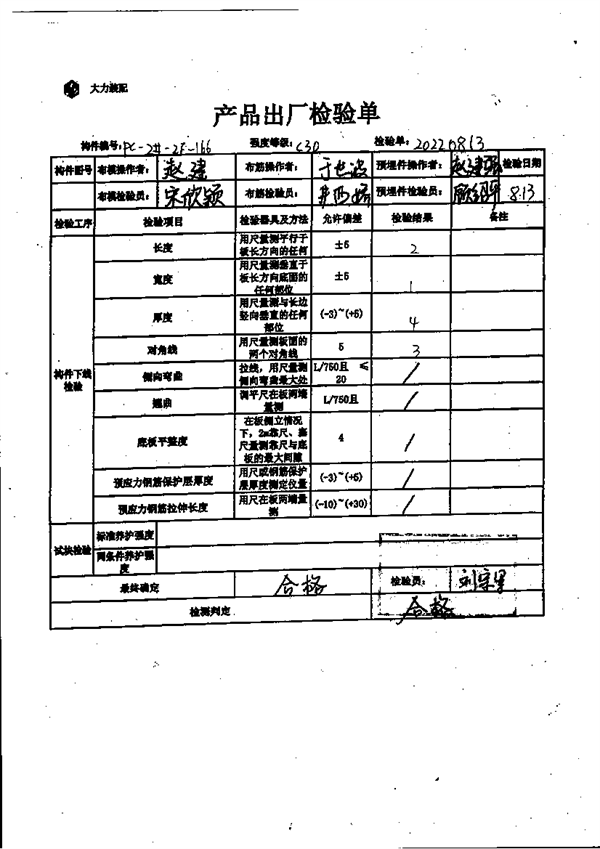 大力装配
产品出厂检验单
构件编号:PC-2#-2F-166 强度等级:C30 检验单:20220813
构件图号 布模操作者: 赵建 布筋操作者: 预埋件操作者: 赵建强 检验日期
布模检验员: 宋欣颖 布筋检验员: 预埋件检验员: 8.13
检验工序 检验项目 检验器具及方法 允许偏差 检验结果 备注
构件下线检验
长度 用尺量测平行于板长方向的任何 ±5 2
宽度 用尺量测垂直于板长方向底面的任何部位 ±5 1
厚度 用尺量测与长边竖向垂直的任何部位 (-3)~(+5) 4
对角线 用尺量测板面的两个对角线 5 3
侧向弯曲 拉线,用尺量测侧向弯曲最大处 L/750且 ≤20 /
翘曲 调平尺在板两端量测 L/750且 /
底板平整度 在板侧立情况下,2m靠尺、塞尺量测靠尺与底板的最大间隙 4 /
预应力钢筋保护层厚度 用尺或钢筋保护层厚度测定仪量 (-3)~(+5) /
预应力钢筋拉伸长度 用尺在板两端量测 (-10)~(+30) /
试块检验 标准养护强度
同条件养护强度
最终确定 合格 检验员:
检测判定 合格